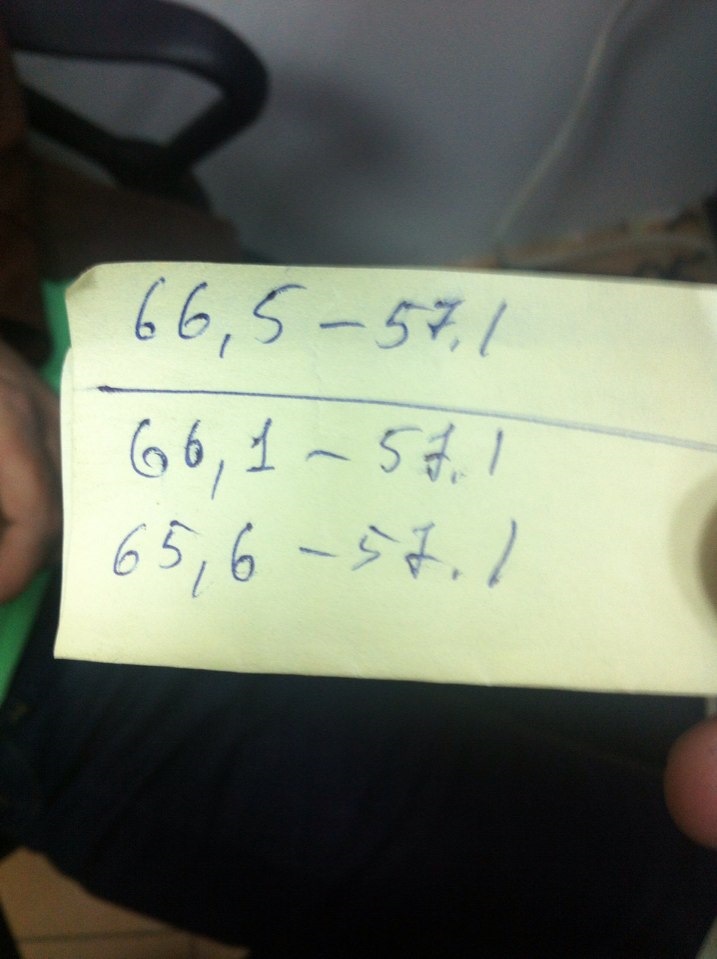 66,5 – 57.1
66,1 – 57.1
65,6 – 57.1